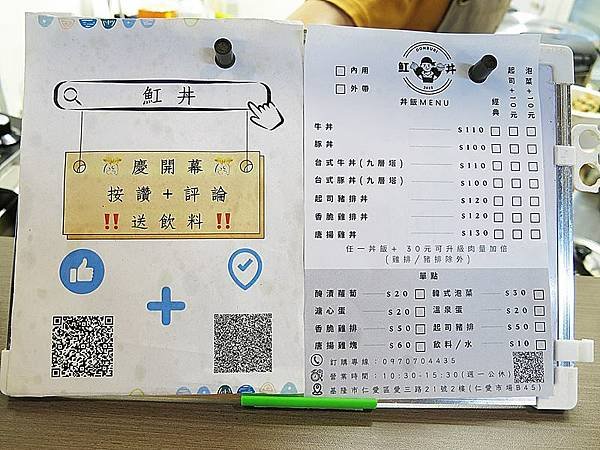 魟丼
慶開幕
按讚+評論
!!送飲料!!
DONBURI
魟 丼
2023
丼飯MENU
內用
外帶
經典
起司+10元
泡菜+10元
牛丼 $110
豚丼 $100
台式牛丼(九層塔) $110
台式豚丼(九層塔) $100
起司豬排丼 $120
香脆雞排丼 $120
唐揚雞丼 $130
任一丼飯+ 30元可升級肉量加倍
(雞排/豬排除外)
單點
醃漬蘿蔔 $20 韓式泡菜 $30
溏心蛋 $20 溫泉蛋 $20
香脆雞排 $50 起司豬排 $50
唐揚雞塊 $60 飲料/水 $10
訂購專線：0970704435
營業時間：10:30-15:30(週一公休)
基隆市仁愛區愛三路21號2樓(仁愛市場B45)